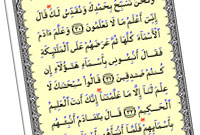 وَنَحْنُ نُسَبِّحُ بِحَمْدِكَ وَنُقَدِّسُ لَكَ قَالَ
إِنِّي أَعْلَمُ مَا لَا تَعْلَمُونَ ٣٠ وَعَلَّمَ ءَادَمَ
الْأَسْمَاءَ كُلَّهَا ثُمَّ عَرَضَهُمْ عَلَى الْمَلَٰئِكَةِ
فَقَالَ أَنْبِئُونِي بِأَسْمَاءِ هَٰؤُلَاءِ إِنْ
كُنْتُمْ صَٰدِقِينَ ٣١ قَالُوا سُبْحَٰنَكَ لَا
عِلْمَ لَنَا إِلَّا مَا عَلَّمْتَنَا إِنَّكَ أَنْتَ الْعَلِيمُ
الْحَكِيمُ ٣٢ قَالَ يَٰٓـَٔادَمُ أَنْبِئْهُمْ
بِأَسْمَائِهِمْ فَلَمَّا